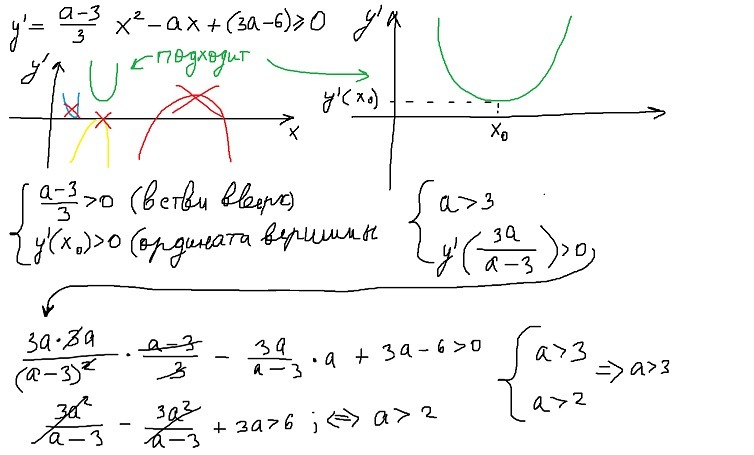 y' = (a-3)/3 x² - ax + (3a-6) ⩾ 0
y'
подходит
x
y'
y'(x₀)
x₀
{ (a-3)/3 > 0 (ветви вверх)
y'(x₀) > 0 (ордината вершины
{ a > 3
y'(3a/(a-3)) > 0
(3a·3a)/(a-3)² · (a-3)/3 - 3a/(a-3) · a + 3a - 6 > 0
3a²/(a-3) - 3a²/(a-3) + 3a > 6 ; ⇔ a > 2
{ a > 3
a > 2
⇒ a > 3